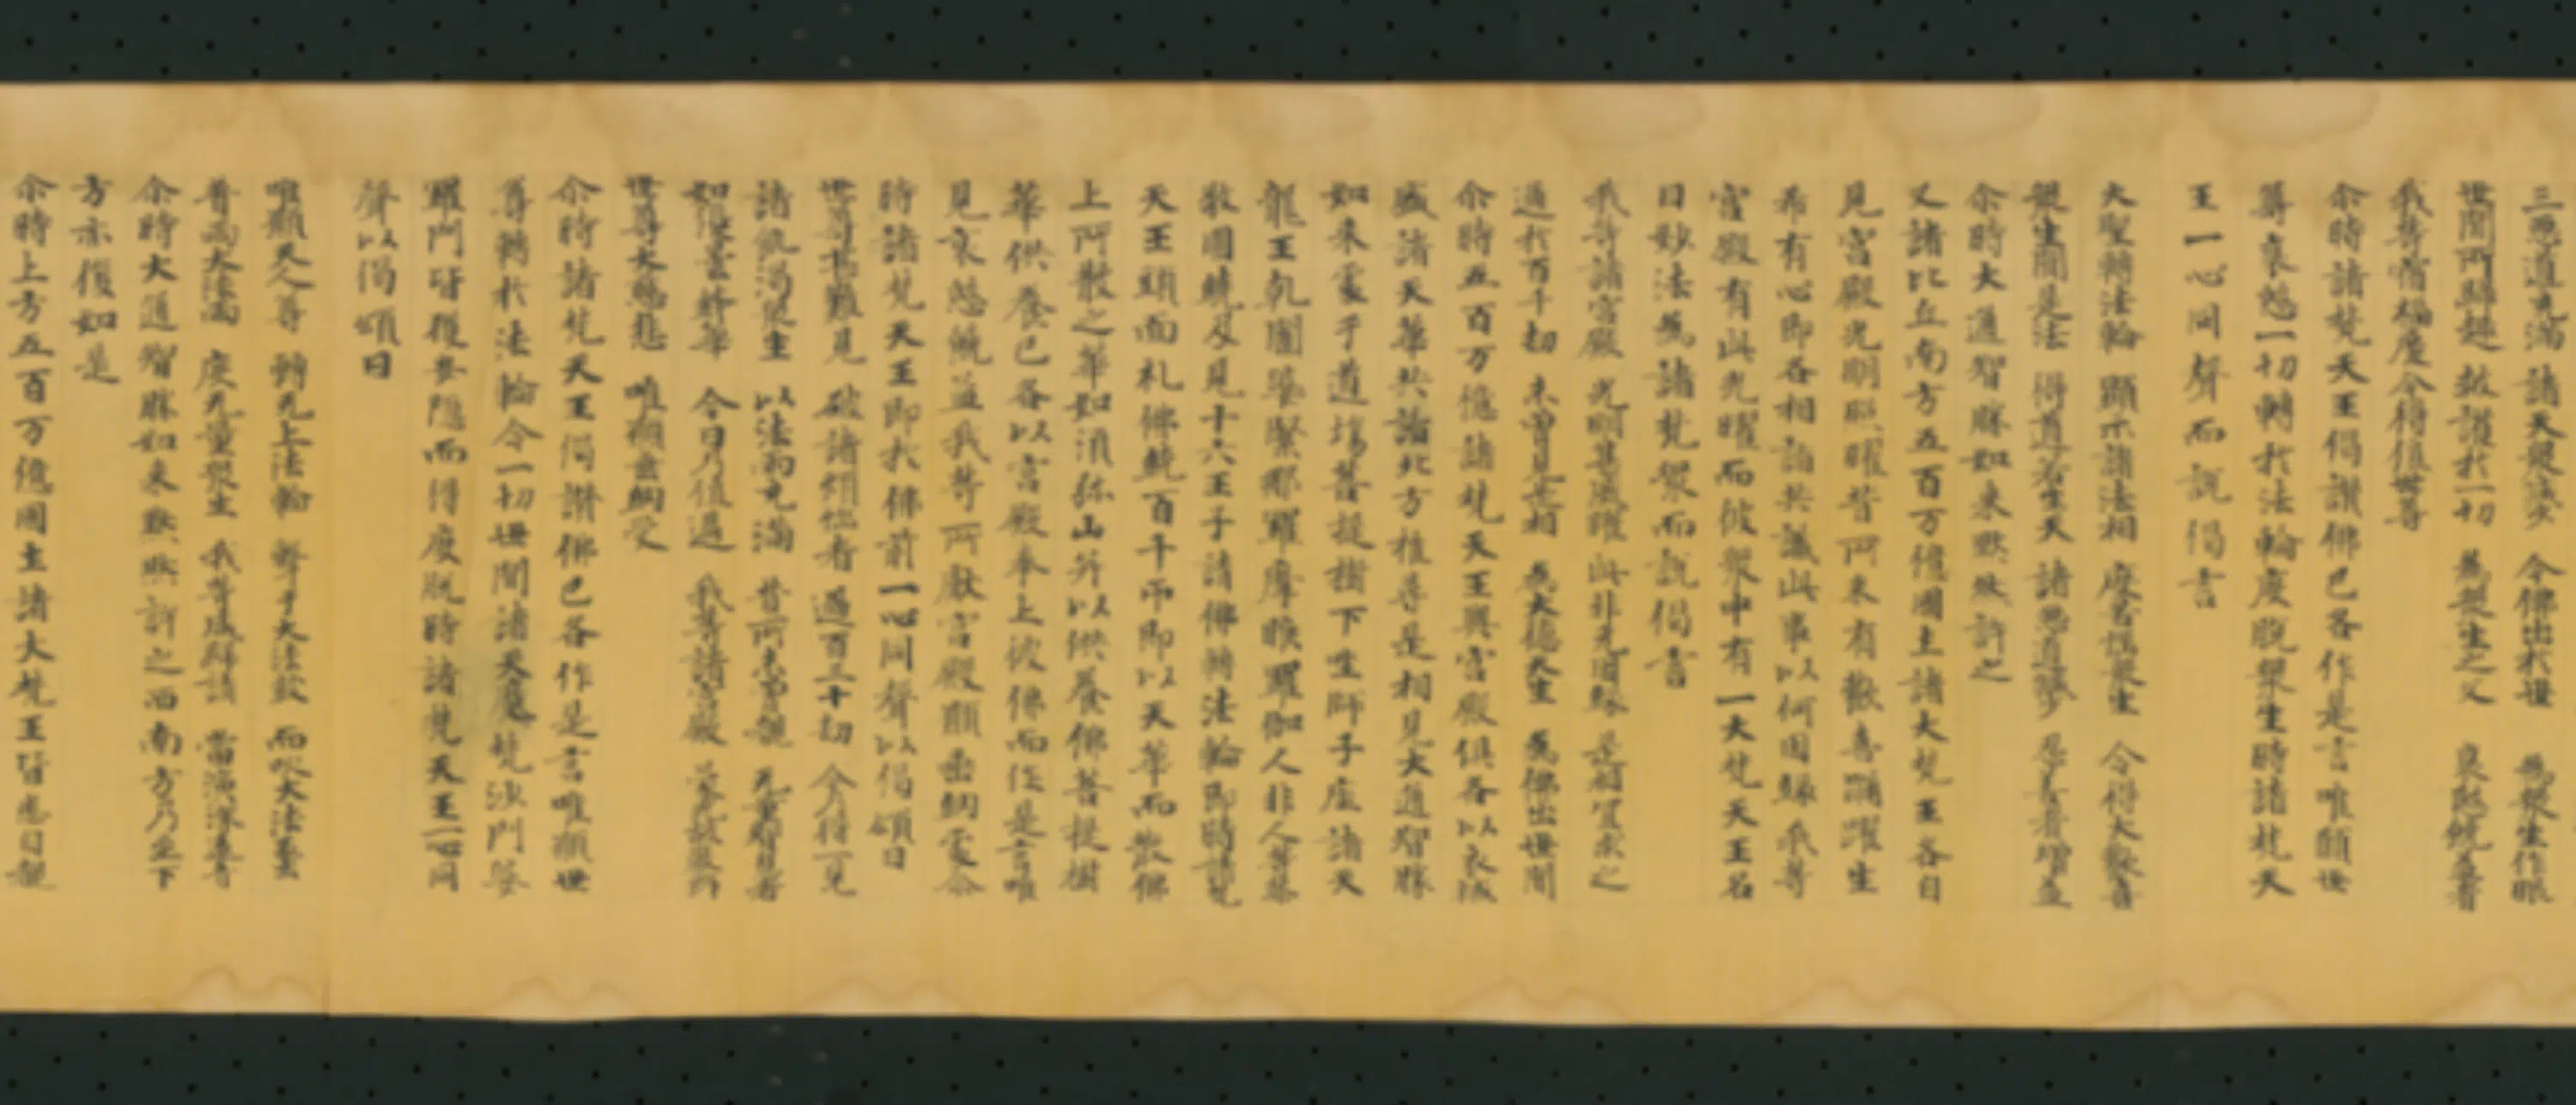 三惡道充滿 諸天衆減少 今佛出於世 爲衆生作眼
世間所歸趣 救護於一切 爲衆生之父 哀愍饒益者
我等宿福慶今得值世尊
尒時諸梵天王偈讃佛已各作是言唯願世
尊哀愍一切轉於法輪度脫衆生時諸梵天
王一心同聲而說偈言
大聖轉法輪 顯示諸法相 度苦惱衆生 令得大歡喜
衆生聞是法 得道若生天 諸惡道減少 忍善者增益
尒時大通智勝如來默然許之
又諸比丘南方五百万億國土諸大梵王各自
見宮殿光明照曜昔所未有歡喜踊躍生
希有心即各相詣共議此事以何因緣我等
宮殿有此光曜而彼衆中有一大梵天王名
曰妙法爲諸梵衆而說偈言
我等諸宮殿 光明甚威曜 此非无因緣 是相宜求之
過於百千劫 未曾見是相 爲大德天生 爲佛出世間
尒時五百万億諸梵天王與宮殿俱各以衣裓
盛諸天華共詣北方推尋是相見大通智勝
如來處于道場菩提樹下坐師子座諸天
龍王乹闥婆緊那羅摩睺羅伽人非人等恭
敬圍繞及見十六王子請佛轉法輪即時諸梵
天王頭面礼佛繞百千帀即以天華而散佛
上所散之華如須弥山并以供養佛菩提樹
華供養已各以宮殿奉上彼佛而作是言唯
見哀愍饒益我等所獻宮殿願垂納處尒
時諸梵天王即於佛前一心同聲以偈頌曰
世尊甚難見 破諸煩惱者 過百三十劫 今乃得一見
諸飢渴衆生 以法雨充滿 昔所未曾覩 无量智慧者
如優曇鉢華 今日乃值遇 我等諸宮殿 蒙光故嚴飾
世尊大慈悲 唯願垂納受
尒時諸梵天王偈讃佛已各作是言唯願世
尊轉於法輪令一切世間諸天魔梵沙門婆
羅門皆獲安隱而得度脫時諸梵天王一心同
聲以偈頌曰
唯願天人尊 轉无上法輪 擊于大法鼓 而吹大法螺
普雨大法雨 度无量衆生 我等咸歸請 當演深遠音
尒時大通智勝如來默然許之西南方乃至下
方亦復如是
尒時上方五百万億國土諸大梵王皆悉自覩